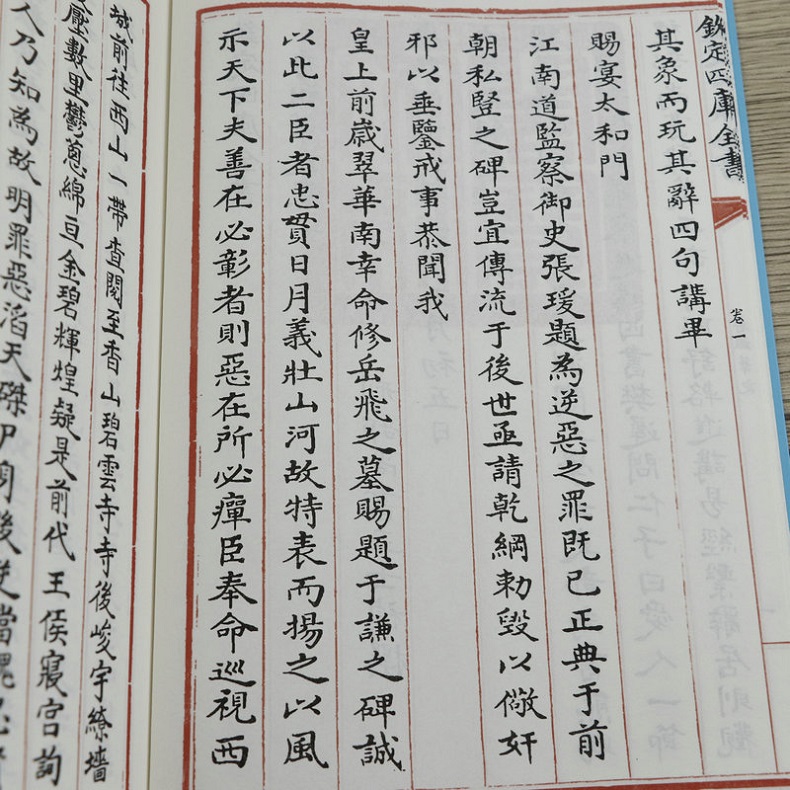 欽定四庫全書
卷一
其象而玩其辭四句講畢
賜宴太和門
江南道監察御史張瑗題為逆惡之罪既已正典于前
朝私豎之碑豈宜傳流于後世亟請乾綱勅毀以儆奸
邪以垂鑒戒事恭聞我
皇上前歲翠華南幸命修岳飛之墓賜題于謙之碑誠
以此二臣者忠貫日月義壯山河故特表而揚之以風
示天下夫善在必彰者則惡在所必癉臣奉命巡視西
城前往西山一帶查閱至香山碧雲寺寺後峻宇繚墻
壓數里鬱葱綿亘金碧輝煌疑是前代王侯寢宮詢
人乃知為故明罪惡滔天磔尸